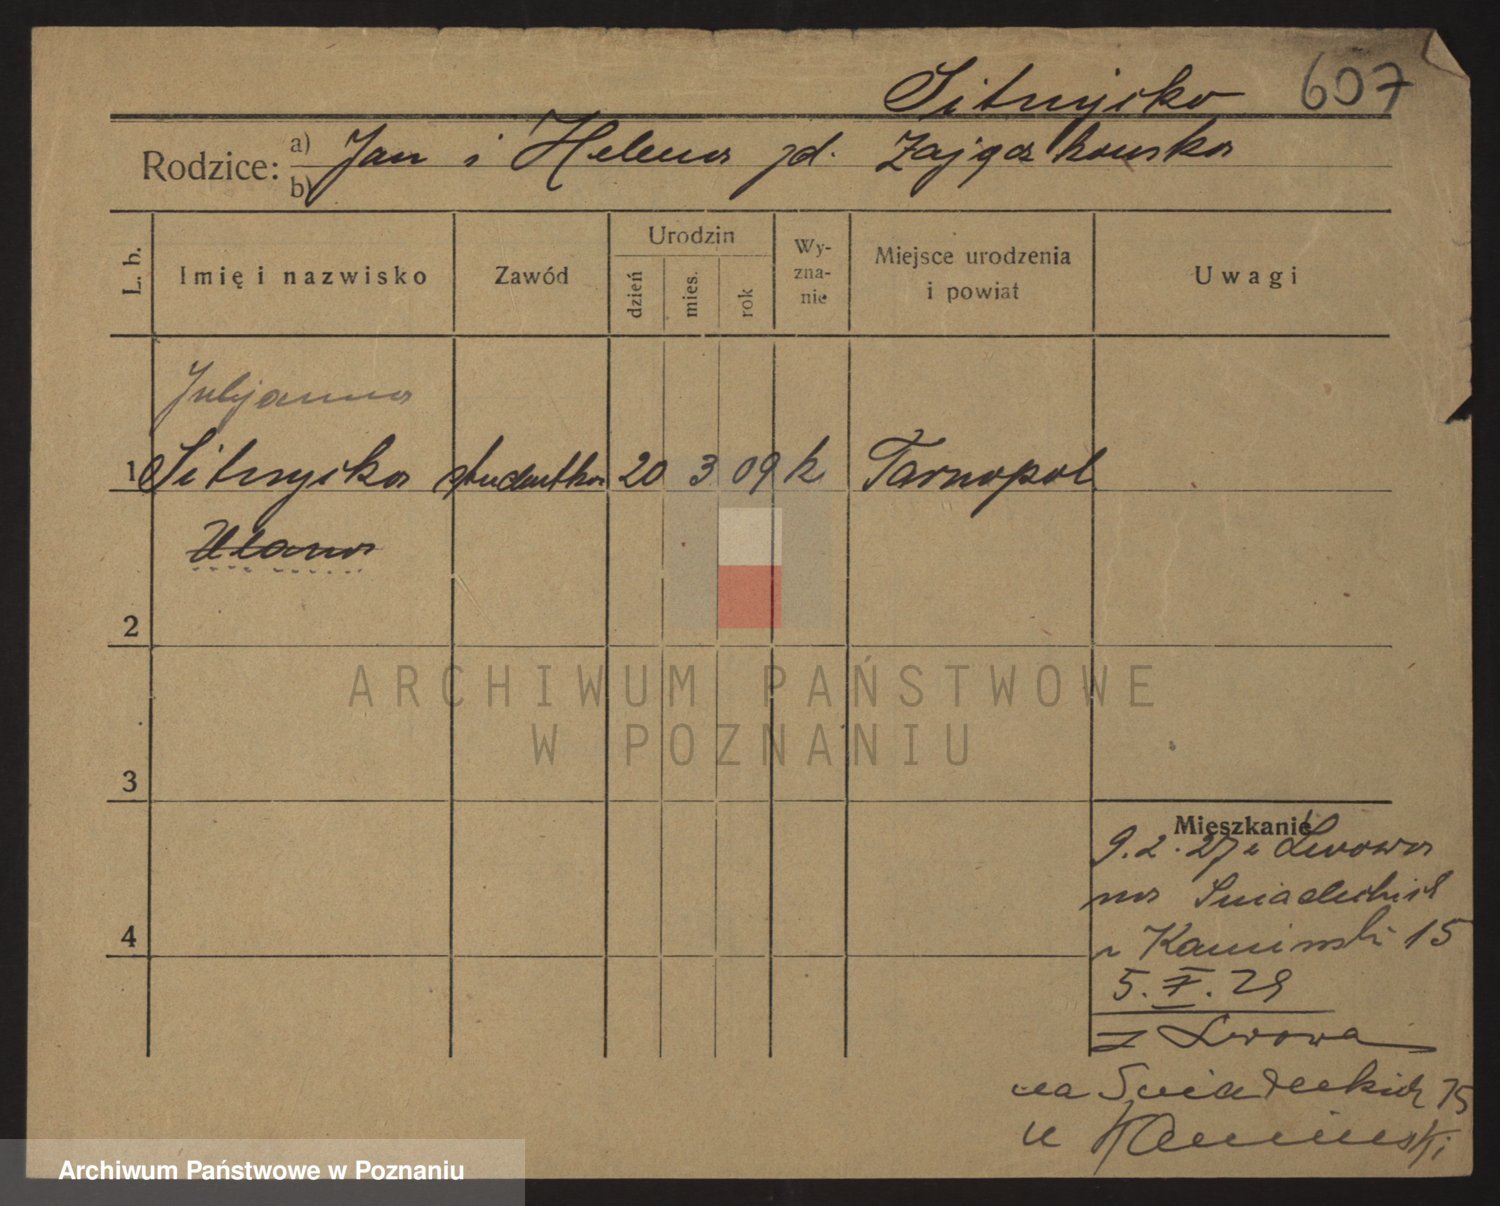 Sitnicka 607
Rodzice: a) b) Jan i Helena zd. Zajączkowska
L. b. Imię i nazwisko Zawód Urodzin dzień mies. rok Wy-zna-nie Miejsce urodzenia i powiat Uwagi
Juljanna
1 Sitnicka studentka 20 3 09 k Tarnopol
2
3
Mieszkanie
9.2.27 z Lwowa
na Śniadeckich
u Kamiński 15
4
5.X.29
z Lwowa
na Śniadeckich 15
u Kamiński
ARCHIWUM PAŃSTWOWE
W POZNANIU
Archiwum Państwowe w Poznaniu